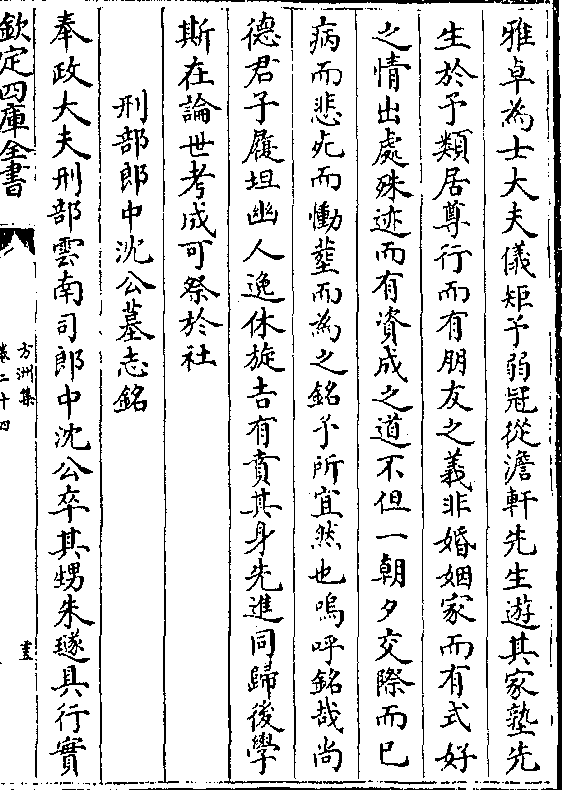 雅卓為士大夫儀矩予弱冠從澹軒先生遊其家塾先
生於予類居尊行而有朋友之義非婚姻家而有式好
之情出處殊迹而有資成之道不但一朝夕交際而已
病而悲死而慟塟而為之銘予所宜然也嗚呼銘哉尚
德君子履坦幽人逸休旋吉有賁其身先進同歸後學
斯在論世考成可祭於社
刑部郎中沈公墓志銘
奉政大夫刑部雲南司郎中沈公卒其甥朱璲具行實
欽定四庫全書
方洲集
卷二十四